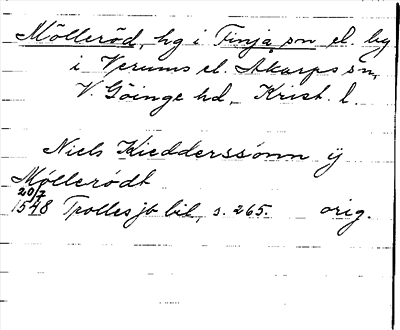 Mölleröd, hg i Finja sn el. by
i Verums el. Akarps sn,
V. Göinge hd, Krist. l.
Niels Kiedderssønn ÿ
Møllerødt
20/3
1548 Trolles jb bil, s. 265. orig.